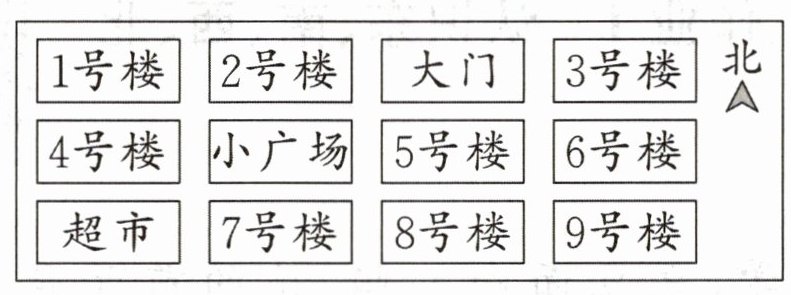 1号楼 2号楼 大门 3号楼 北
4号楼 小广场 5号楼 6号楼
超市 7号楼 8号楼 9号楼